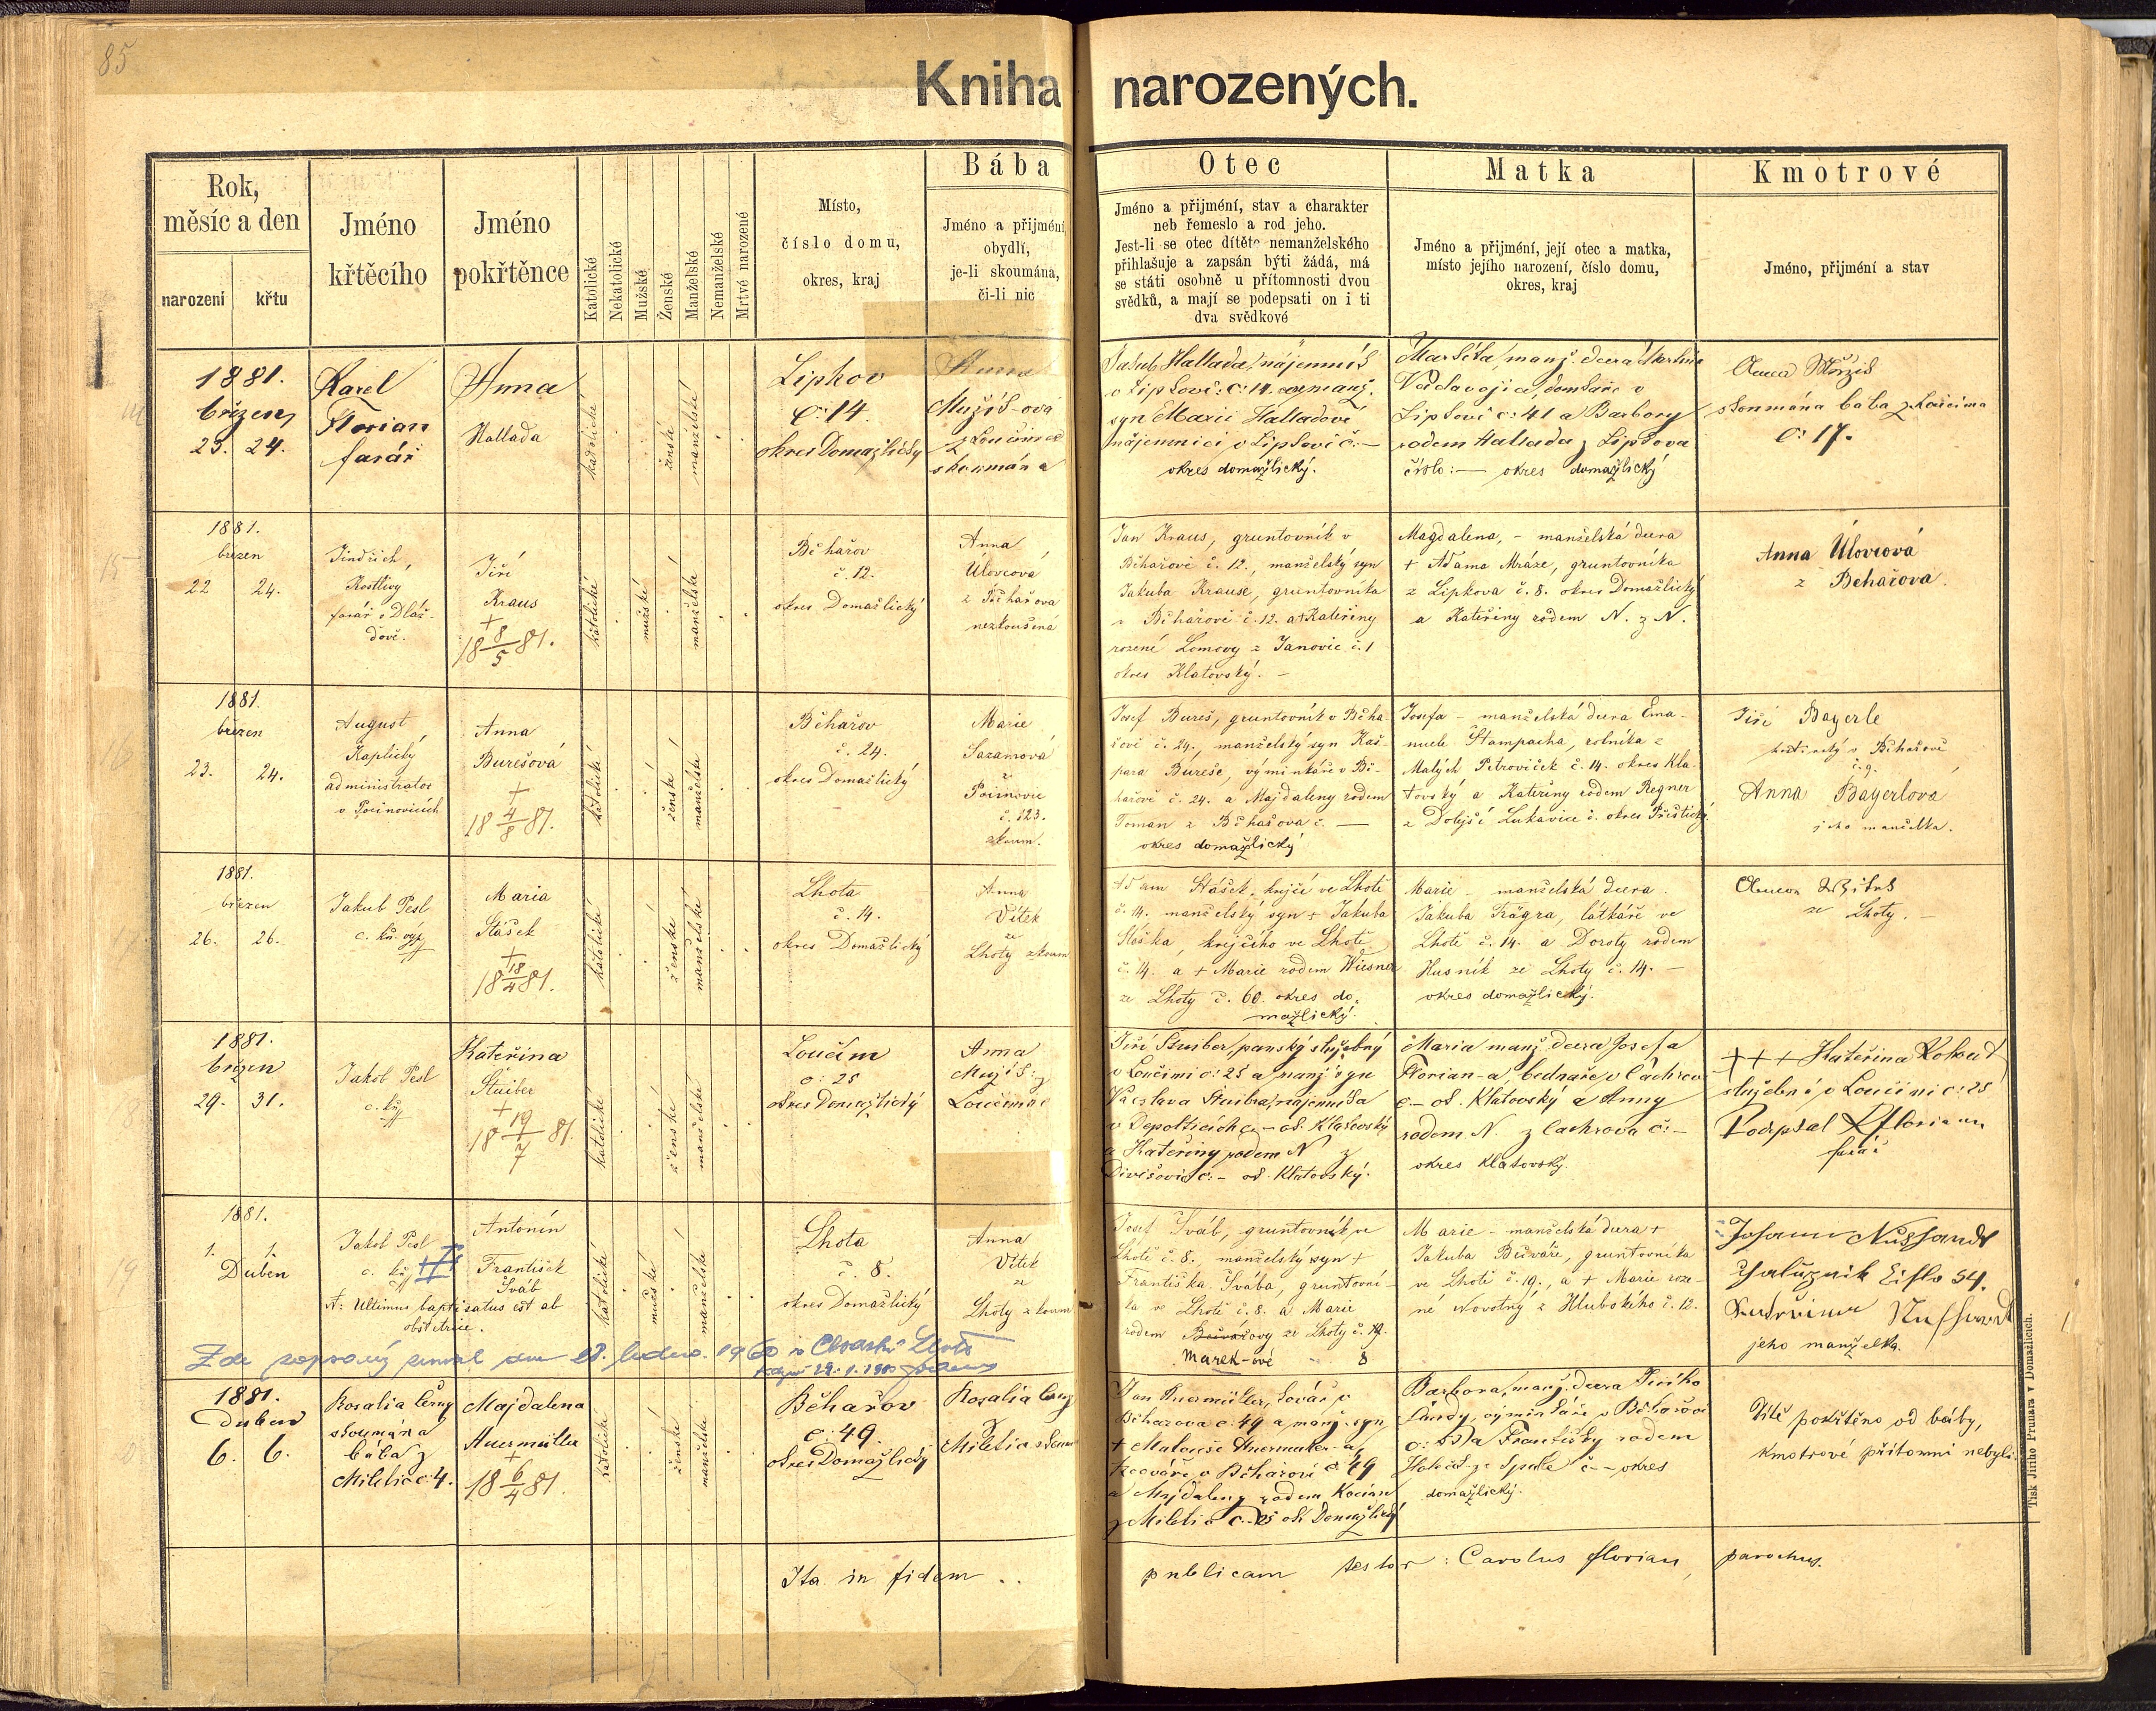 85
Kniha narozených.
Rok,
měsíc a den
narození
křtu
Jméno
křtěcího
Jméno
pokřtěnce
Katolické
Nekatolické
Mužské
Ženské
Manželské
Nemanželské
Mrtvé narozené
Místo,
číslo domu,
okres, kraj
Bába
Jméno a přijmění,
obydlí,
je-li skoumána,
či-li nic
Otec
Jméno a přijmění, stav a charakter
neb řemeslo a rod jeho.
Jest-li se otec dítěte nemanželského
přihlašuje a zapsán býti žádá, má
se státi osobně u přítomnosti dvou
svědků, a mají se podepsati on i ti
dva svědkové
Matka
Jméno a přijmění, její otec a matka,
místo jejího narození, číslo domu,
okres, kraj
Kmotrové
Jméno, přijmění a stav
1881.
březen
23. 24.
Karel
Florian
farář
Anna
Hallada
katolické
ženské
manželské
Lipkov
č: 14.
okres Domažlický
Anna
z Loučimě
skoumána
Jakub Hallada, nájemník
v Lipkově č: 14.
syn Marii Halladové
nájemnici v Lipkově č. —
okres domažlický.
Markéta, manž. dcera Martina
Lipkově č: 41 a Barbory
rodem Hallada z Lipkova
číslo: — okres domažlický
Anna
skoumána bába z Loučima
č: 17.
1881.
březen
22 24.
Jindřich,
Kostlivý
farář v Dláž-
dově.
Jiří
Kraus
+
18 8/5 81.
katolické
mužské
manželské
Běhařov
č. 12.
okres Domažlický
Anna
Úlovcová
z Běhařova
nezkoušená
Jan Kraus, gruntovník v
Běhařově č. 12., manželský syn
Jakuba Krause, gruntovníka
v Běhařově č. 12. a + Kateřiny
rozené Lomovy z Janovic č. 1
okres Klatovský. —
Magdalena, - manželská dcera
+ Adama Mráze, gruntovníka
z Lipkova č. 8. okres Domažlický
a Kateřiny rodem N. z N.
Anna Úlovcová
z Běhařova.
1881.
březen
23. 24.
August
Kaplický
administrator
v Pocinovicích
Anna
Burešová
+
18 4/8 81.
katolické
ženské
manželské
Běhařov
č. 24.
okres Domažlický
Marie
Sazamová
z
č. 123.
zkoum.
Josef Bureš, gruntovník v Běha-
řově č. 24., manželský syn Kaš-
para Bureše, výminkáře v Bě-
hařově č. 24. a Majdaleny rodem
Toman z Běhařova č. —
okres domažlický
Josefa - manželská dcera Ema-
nuele Štampacha, rolníka z
Malých Petroviček č. 14. okres Kla-
tovský a Kateřiny rodem Regner
z Dolejší Lukavice č. okres Přeštický
Jiří Bayerle
v Běhařově
č. 9.
Anna Bayerlová
jeho manželka.
1881.
březen
26. 26.
Jakub Pesl
Maria
Stášek
+
18 18/4 81.
katolické
ženské
manželské
Lhota
č. 14.
okres Domažlický
Anna
Vítek
ze
Lhoty zkoum
Adam Stášek, krejčí ve Lhotě
č. 14. manželský syn + Jakuba
Stáška, krejčího ve Lhotě
č. 14. a + Marie rodem Wiesner
ze Lhoty č. 60. okres do-
mažlický.
Marie - manželská dcera
Jakuba Trägra, látkáře ve
Lhotě č. 14. a Doroty rodem
Husník ze Lhoty č. 14. —
okres domažlický.
ze Lhoty. —
1881.
březen
29. 31.
Jakob Pesl
Kateřina
Stuiber
+
18 19/7 81.
katolické
ženské
manželské
Loučim
č: 25
okres Domažlický
Anna
Loučimě
Jiří Stuiber, panský služebný
v Loučimi č: 25 a manž. syn
Václava Stuibra, nájemníka
v Depolticích č. — ok. Klatovský
a Kateřiny rodem N z
Divišovic č: — ok. Klatovský.
Maria manž. dcera Josefa
Florian-a, bednáře v Čachrově
č. — ok. Klatovský a Anny
rodem N. z Čachrova č: —
okres Klatovský.
+++ Kateřina Kohout
služebná v Loučimi č: 25
Podepsal K Florian
farář
1881.
1. 1.
Duben
Jakob Pesl
A: Ultimus baptisatus est ab
obstetrice.
Antonín
František
Šváb
katolické
mužské
manželské
Lhota
č. 8.
okres Domažlický
Anna
Vítek
ze
Lhoty zkoum
Josef Šváb, gruntovník ve
Lhotě č. 8. manželský syn +
Františka Švába, gruntovní-
ka ve Lhotě č. 8. a Marie
rodem Bečvářovy ze Lhoty č. 19.
Marek-ové 8
Marie - manželská dcera +
Jakuba Bečváře, gruntovníka
ve Lhotě č. 19., a + Marie roze-
né Novotný z Hlubokého č. 12.
54.
jeho manželka.
Zde zapsaný zemřel dne 28. ledna 1960 v
1881.
Duben
6. 6.
Rosalia Černý
skoumána
bába z
Miletic č: 4.
Majdalena
Auermüller
+
18 6/4 81.
katolické
ženské
manželské
Běhařov
č: 49.
okres Domažlický
Rosalia Černý
z
Miletic skoum
Jan Auermüller, kovář v
Běhařově č: 49 a manž. syn
+ Matouše Auermüller-a,
kováře v Běhařově č. 49
a Majdaleny rodem Kocian
z Miletic č. 25 ok. Domažlický
Barbora, manž. dcera Jiřího
výminkáře v Běhařově
a Františky rodem
č. — okres
domažlický.
Dítě pokřtěno od báby,
kmotrové přítomni nebyli.
Ita in fidem .. publicam testor: Carolus Florian, parochus.
Tisk Jiřího Prunara v Domažlicích.